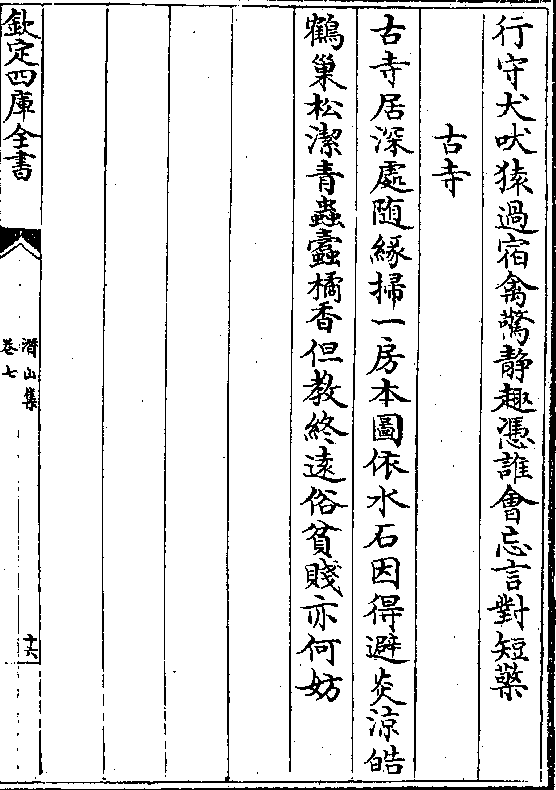 行守犬吠猿過宿禽驚静趣憑誰會忘言對短檠
古寺
古寺居深處随緣掃一房本圖依水石因得避炎涼皓
鶴巢松潔青蟲蠧橘香但教終遠俗貧賤亦何妨
欽定四庫全書
潛山集
卷七
十六